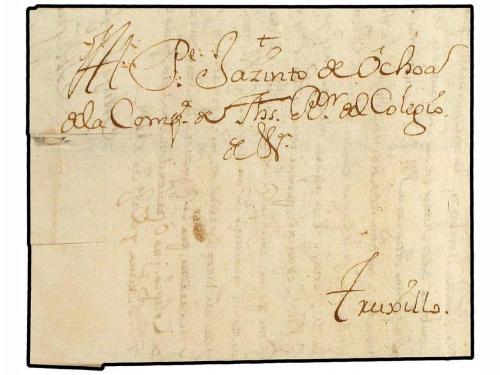 Al Pe. Jazinto de Ochoa
de la Compª. de Jhs. Rer. del Colegio
de
Truxillo.